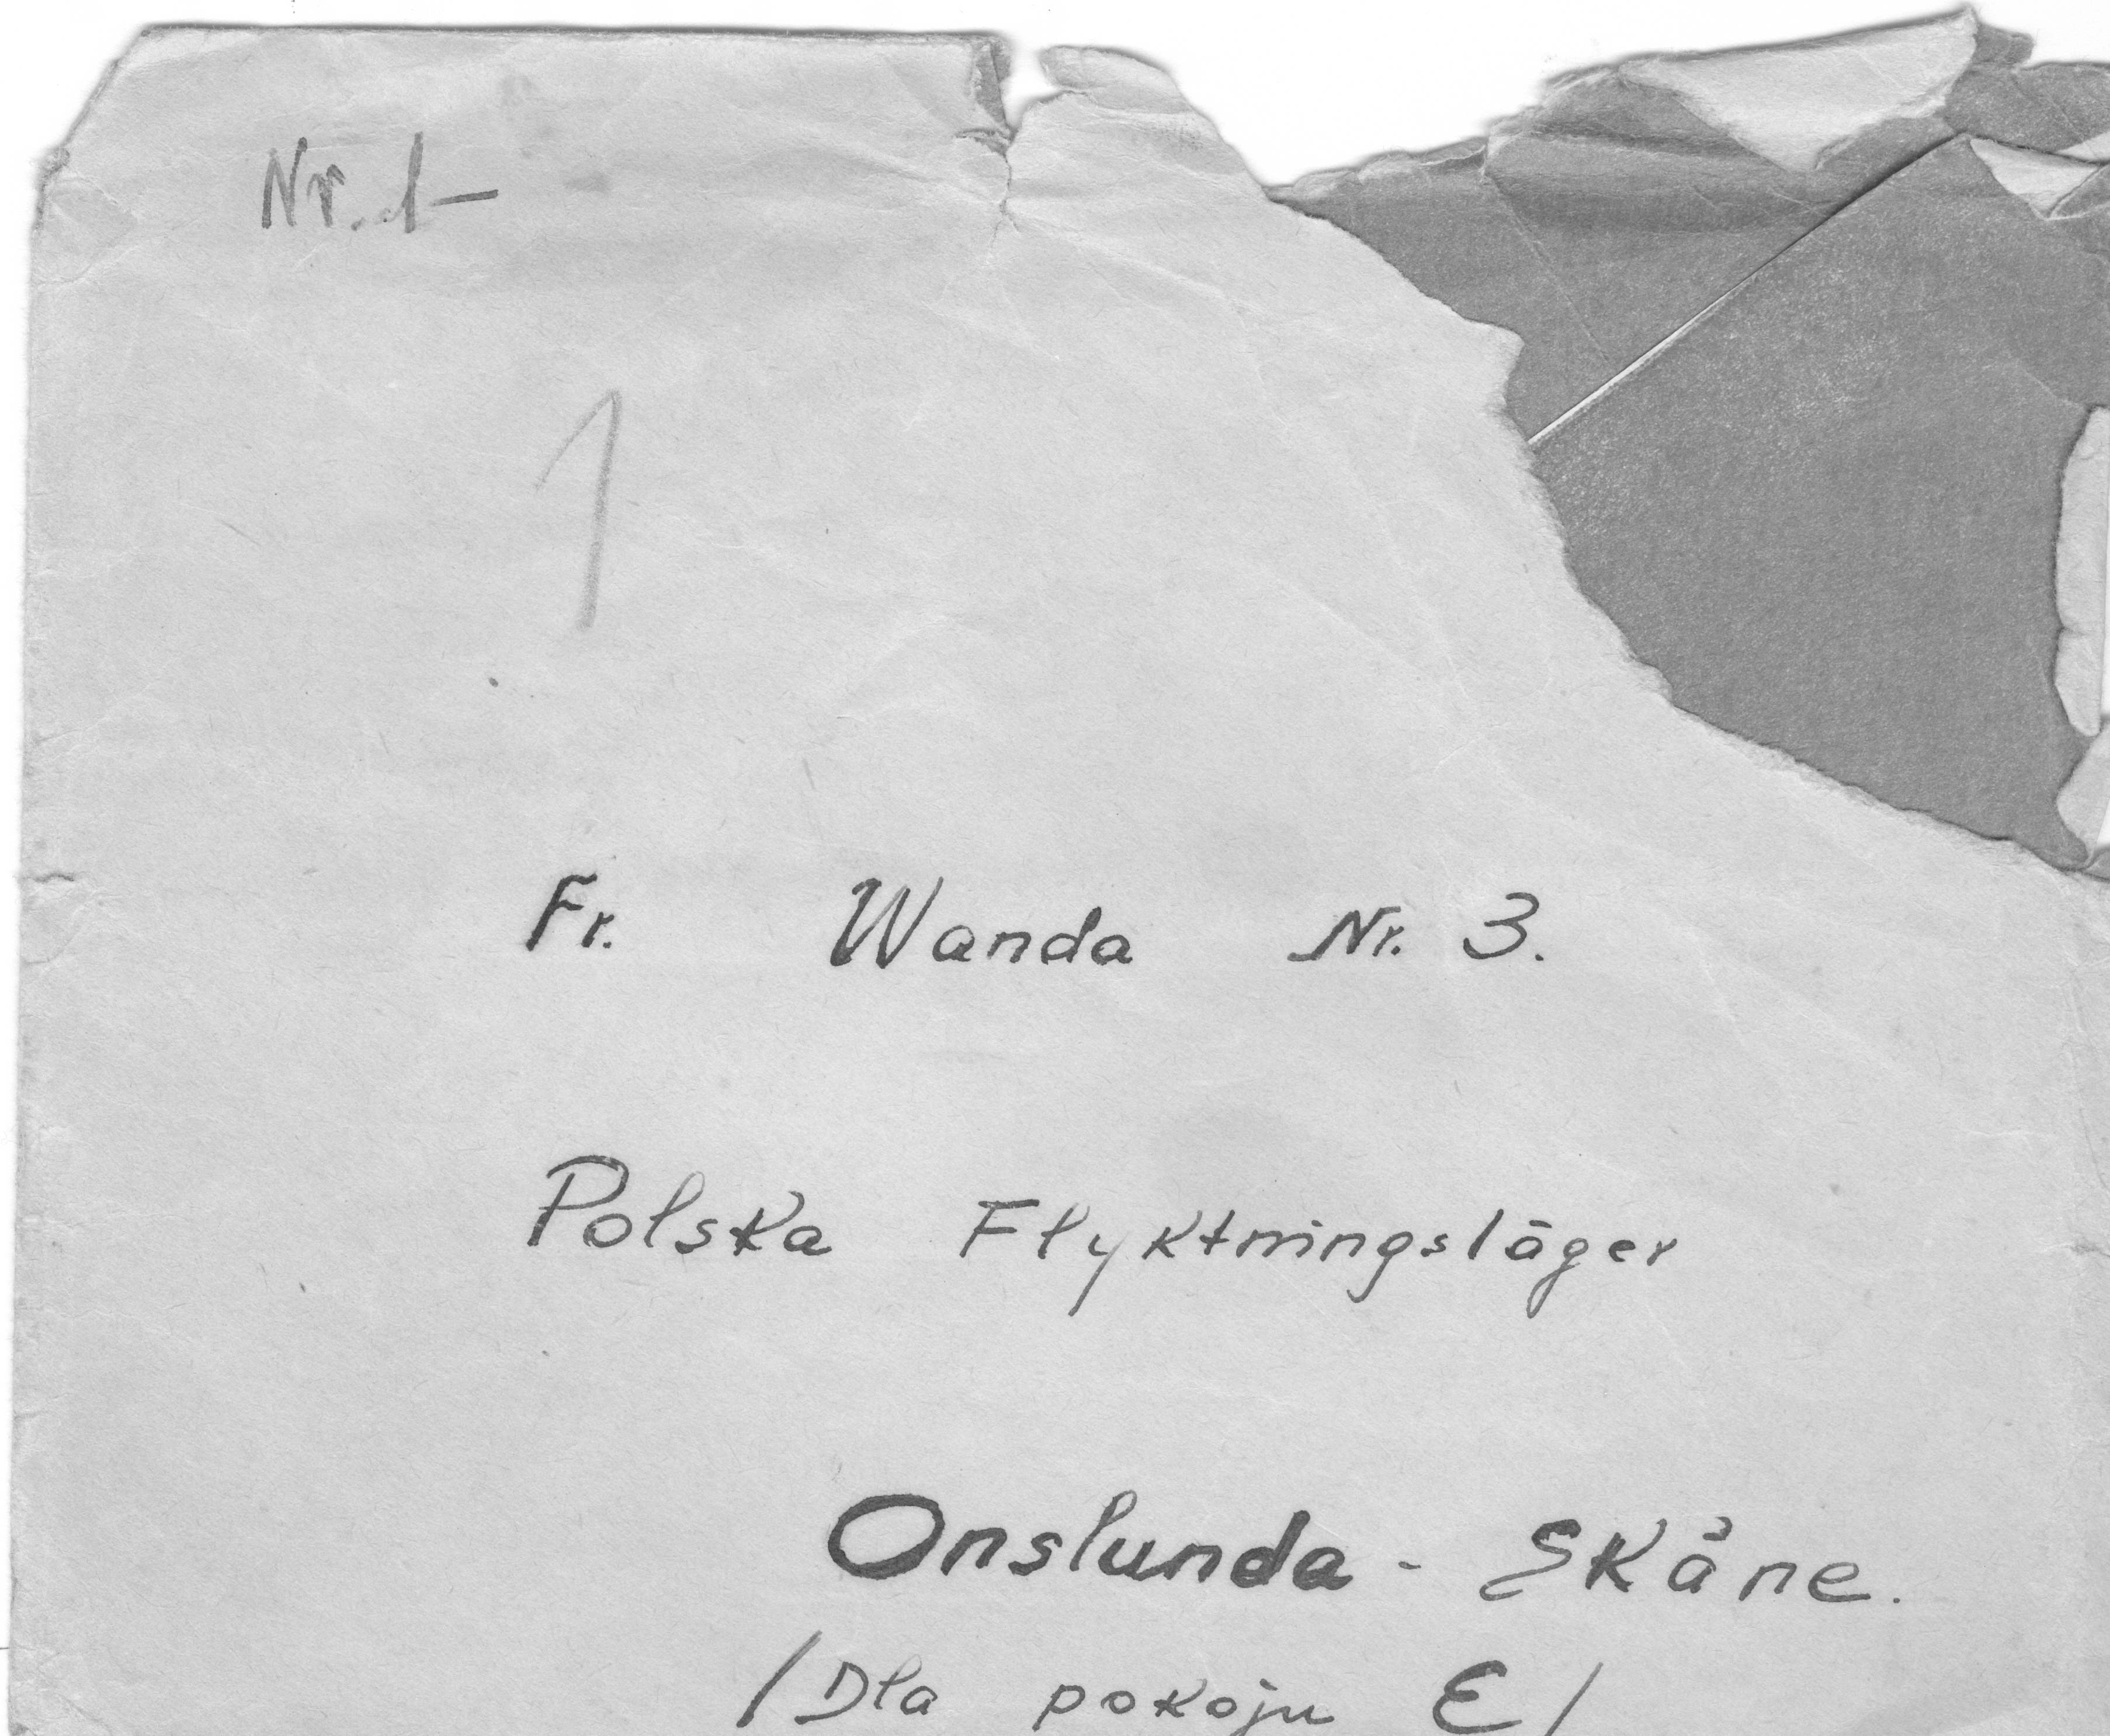 Nr. 1-
1
Fr. Wanda Nr. 3.
Polska Flyktningsläger
Onslunda - Skåne.
/Dla pokoju E/